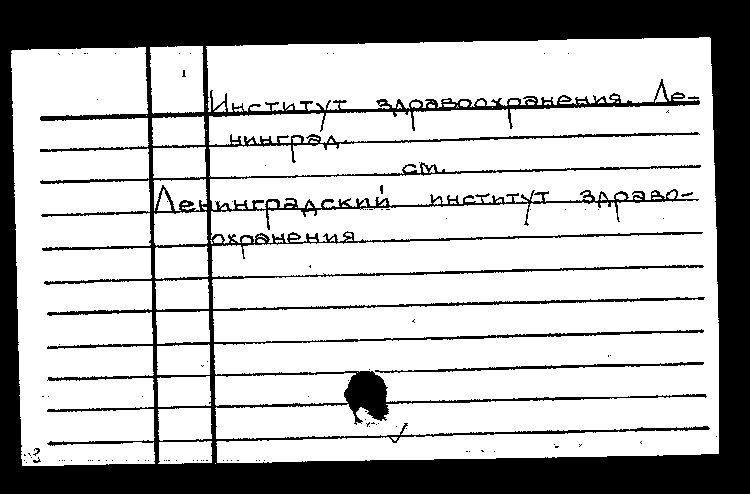 Институт здравоохранения. Ле-
нинград.
см.
Ленинградский институт здраво-
охранения.